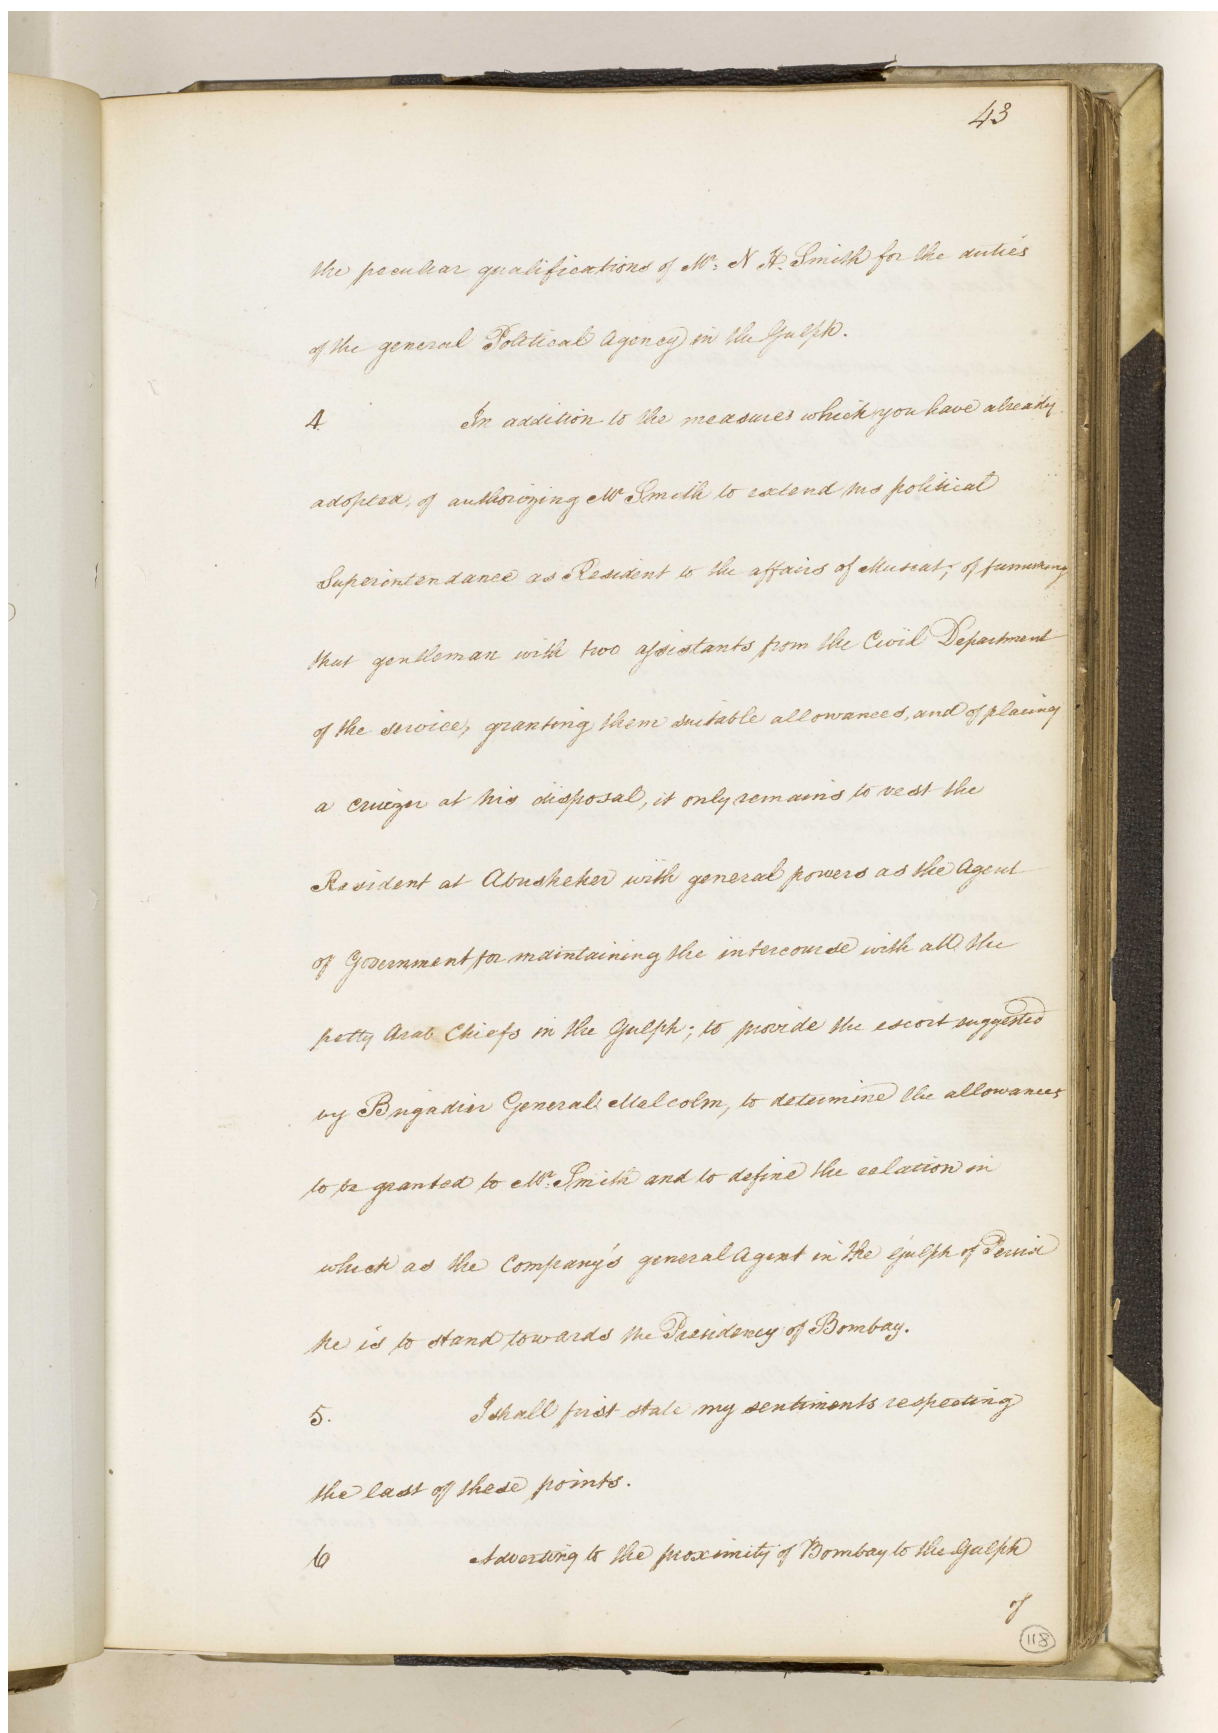 43
the peculiar qualifications of Mr. N H. Smith for the duties
of the general Political Agency in the Gulph.
4 In addition to the measures which you have already
adopted, of authorizing Mr Smith to extend his political
Superintendance as Resident to the affairs of Muscat; of furnishing
that gentleman with two assistants from the Civil Department
of the service, granting them suitable allowances, and of placing
a cruizer at his disposal, it only remains to vest the
Resident at Abusheher with general powers as the Agent
of Government for maintaining the intercourse with all the
petty Arab Chiefs in the Gulph; to provide the escort suggested
by Brigadier General Malcolm, to determine the allowances
to be granted to Mr. Smith and to define the relation in
which as the Company's general Agent in the Gulph of Persia
he is to stand towards the Presidency of Bombay.
5. I shall first state my sentiments respecting
the last of these points.
6 Adverting to the proximity of Bombay to the Gulph
of
118